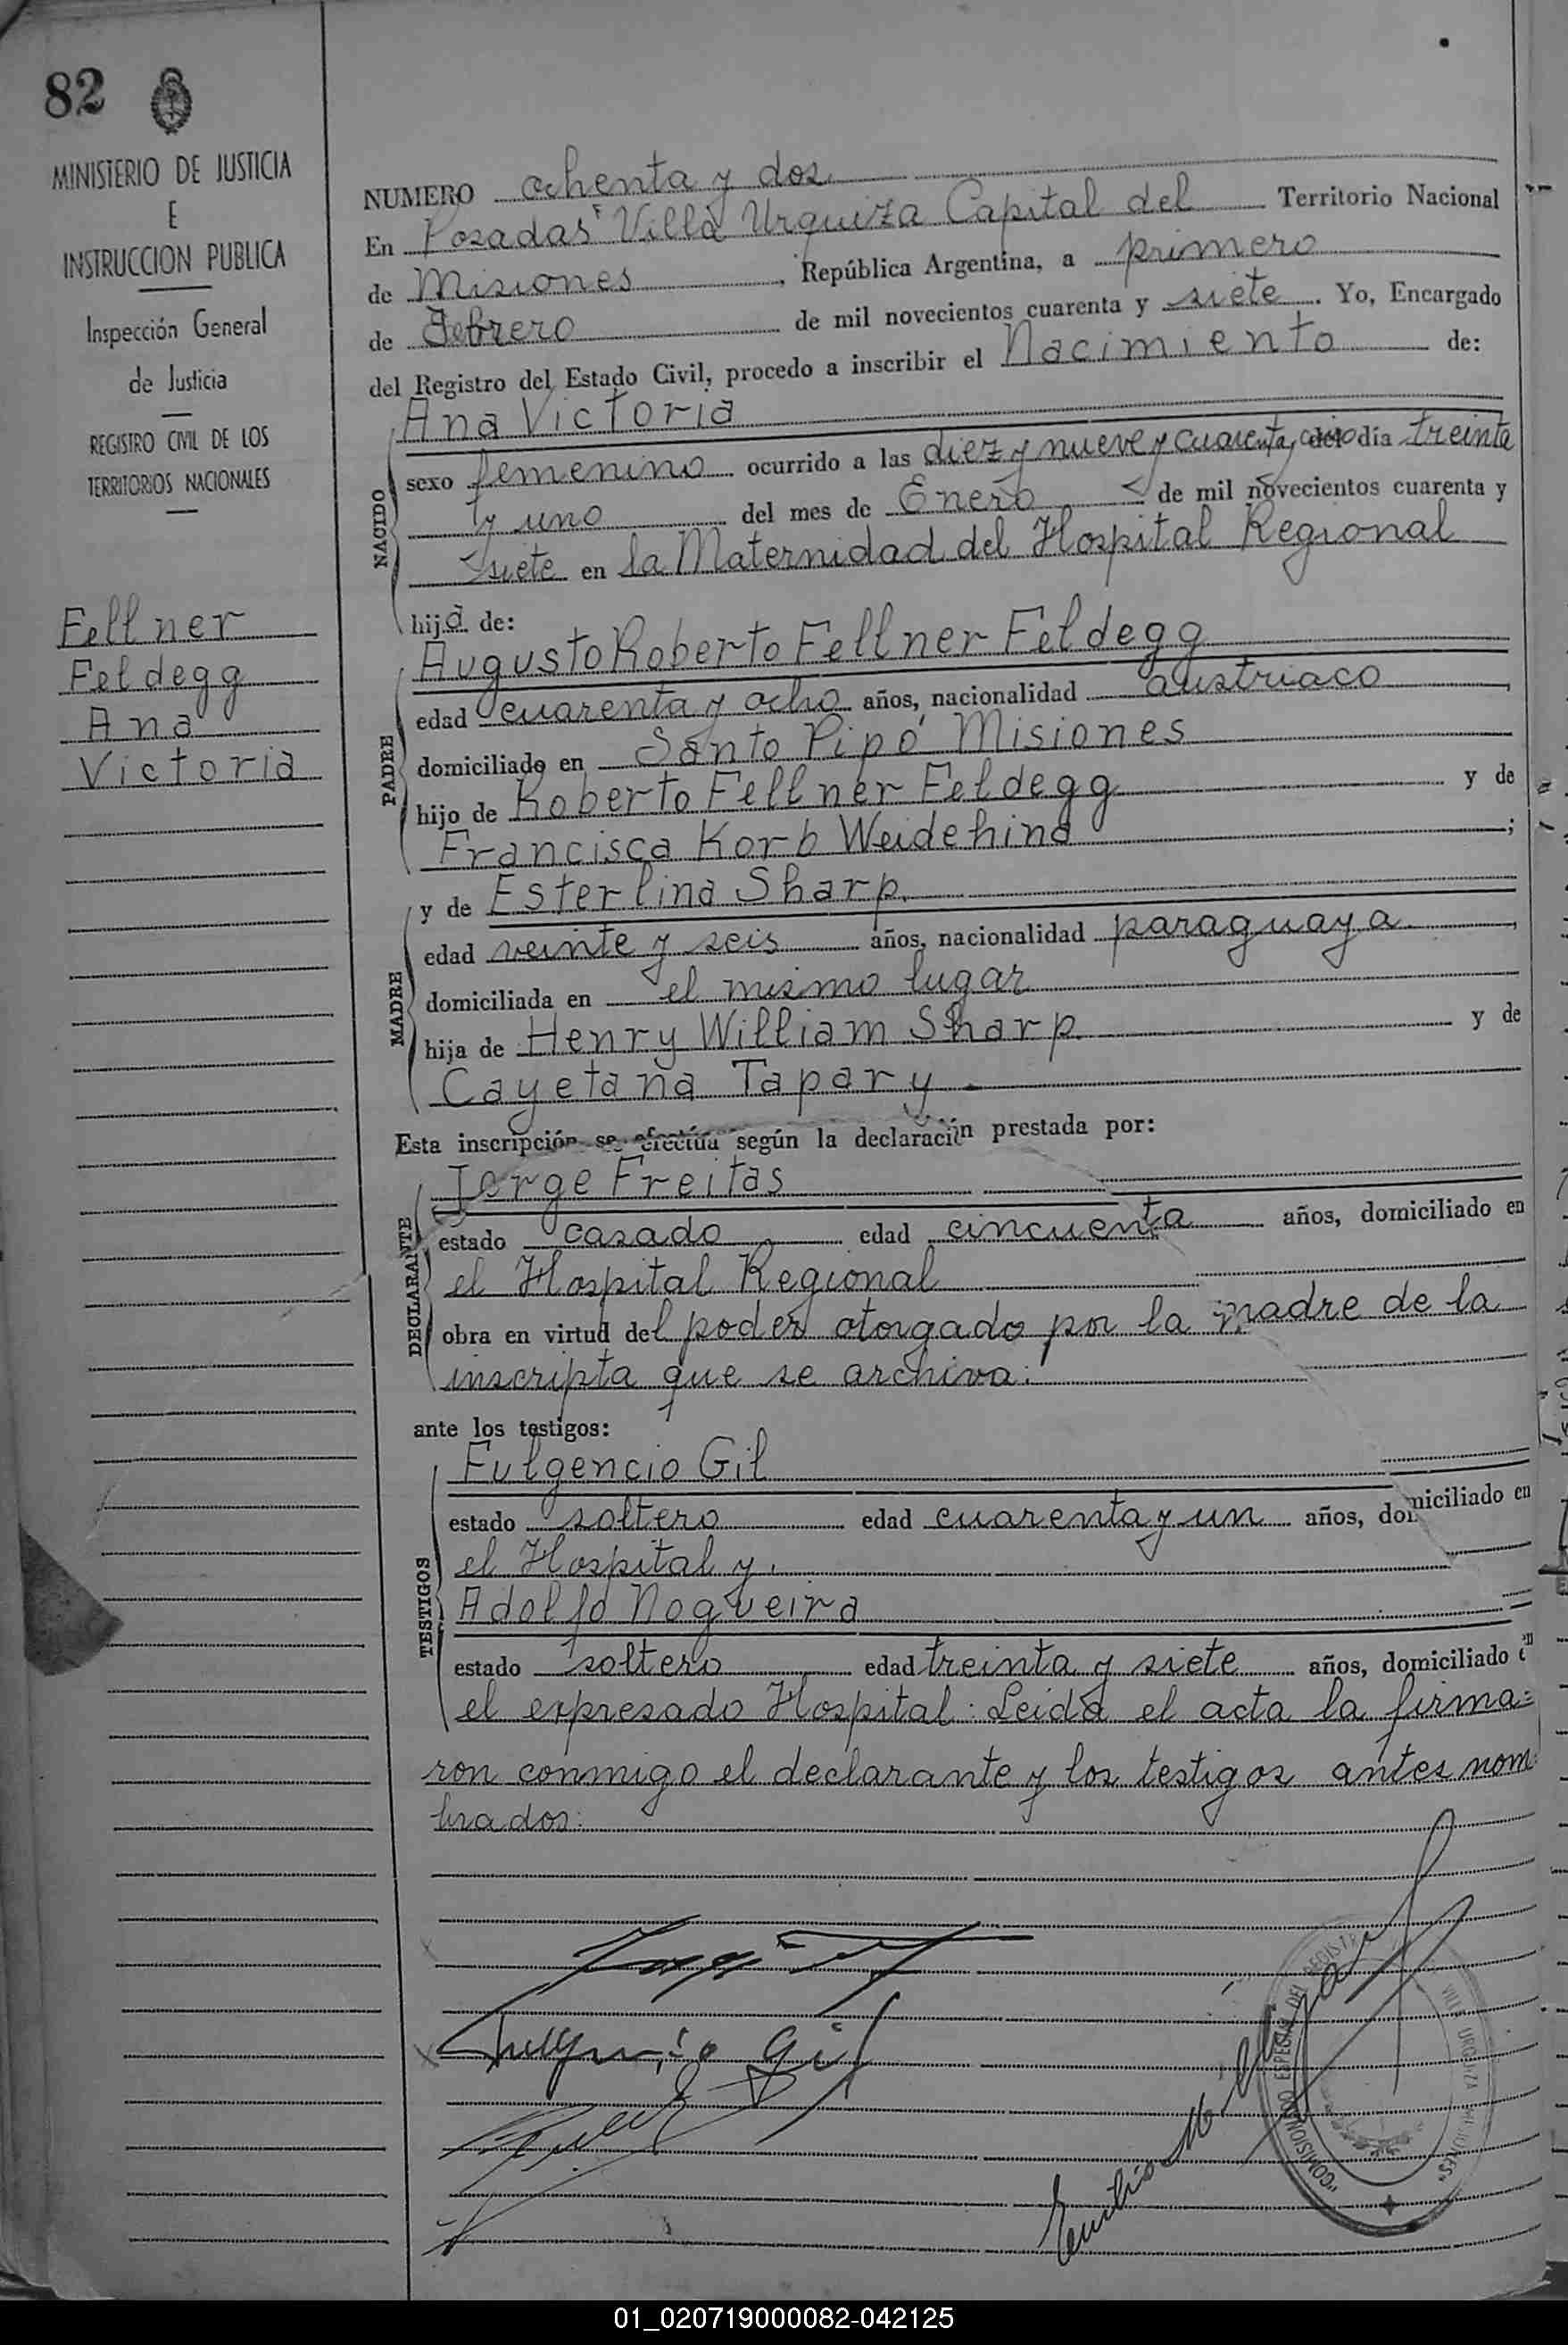 82
MINISTERIO DE JUSTICIA
E
INSTRUCCION PUBLICA
Inspección General
de Justicia
REGISTRO CIVIL DE LOS
TERRITORIOS NACIONALES
Fellner
Feldegg
Ana
Victoria
NUMERO ochenta y dos
En Posadas Villa Urquiza Capital del Territorio Nacional
de Misiones, República Argentina, a primero
de Febrero de mil novecientos cuarenta y siete. Yo, Encargado
del Registro del Estado Civil, procedo a inscribir el Nacimiento de:
NACIDO
Ana Victoria
sexo femenino ocurrido a las diez y nueve y cuarenta y cinco día treinta
y uno del mes de Enero de mil novecientos cuarenta y
siete en la Maternidad del Hospital Regional
hija de:
PADRE
Augusto Roberto Fellner Feldegg
edad cuarenta y ocho años, nacionalidad austriaco
domiciliado en Santo Pipó Misiones
hijo de Roberto Fellner Feldegg y de
Francisca Korb Weidehina;
MADRE
y de Esterlina Sharp.
edad veinte y seis años, nacionalidad paraguaya.
domiciliada en el mismo lugar
hija de Henry William Sharp. y de
Cayetana Tapary
Esta inscripción se efectúa según la declaración prestada por:
DECLARANTE
Jorge Freitas
estado casado edad cincuenta años, domiciliado en
el Hospital Regional
obra en virtud del poder otorgado por la madre de la
inscripta que se archiva:
ante los testigos:
TESTIGOS
Fulgencio Gil
estado soltero edad cuarenta y un años, domiciliado en
el Hospital y.
Adolfo Nogueira
estado soltero edad treinta y siete años, domiciliado
el expresado Hospital: Leida el acta la firma=
ron conmigo el declarante y los testigos antes nom
brados:
Fulgencio Gil
Emilio
COMISIONADO ESPECIAL DEL REGISTR
VILLA URQUIZA MISIONES
01_020719000082-042125